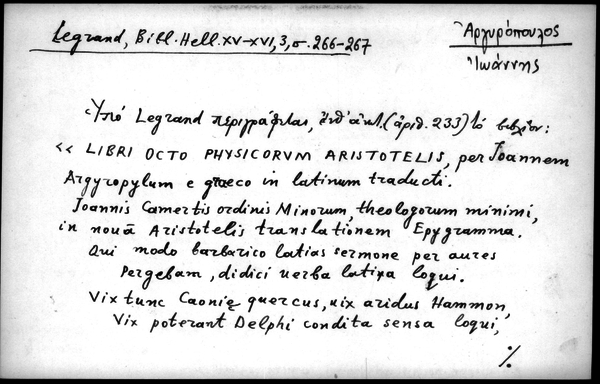 Legrand, Bibl. Hell. XV-XVI, 3, σ. 266-267
Ἀργυρόπουλος
Ἰωάννης
Ὑπό Legrand περιγράφεται, (ἀριθ. 233) τό βιβλίον:
<< LIBRI OCTO PHYSICORVM ARISTOTELIS, per Joannem
Argyropylum e graeco in latinum traducti.
Joannis Camertis ordinis Minorum, theologorum minimi,
in nouā Aristotelis translationem Epygramma.
Qui modo barbarico latias sermone per aures
Pergebam, didici uerba latina loqui.
Vix tunc Caonię quercus, uix aridus Hammon,
Vix poterant Delphi condita sensa loqui,
%